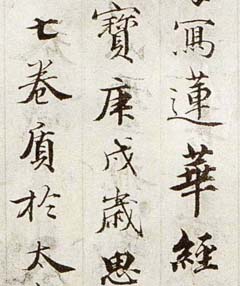 寫蓮華經
寶庚戌歲思
七卷質於太